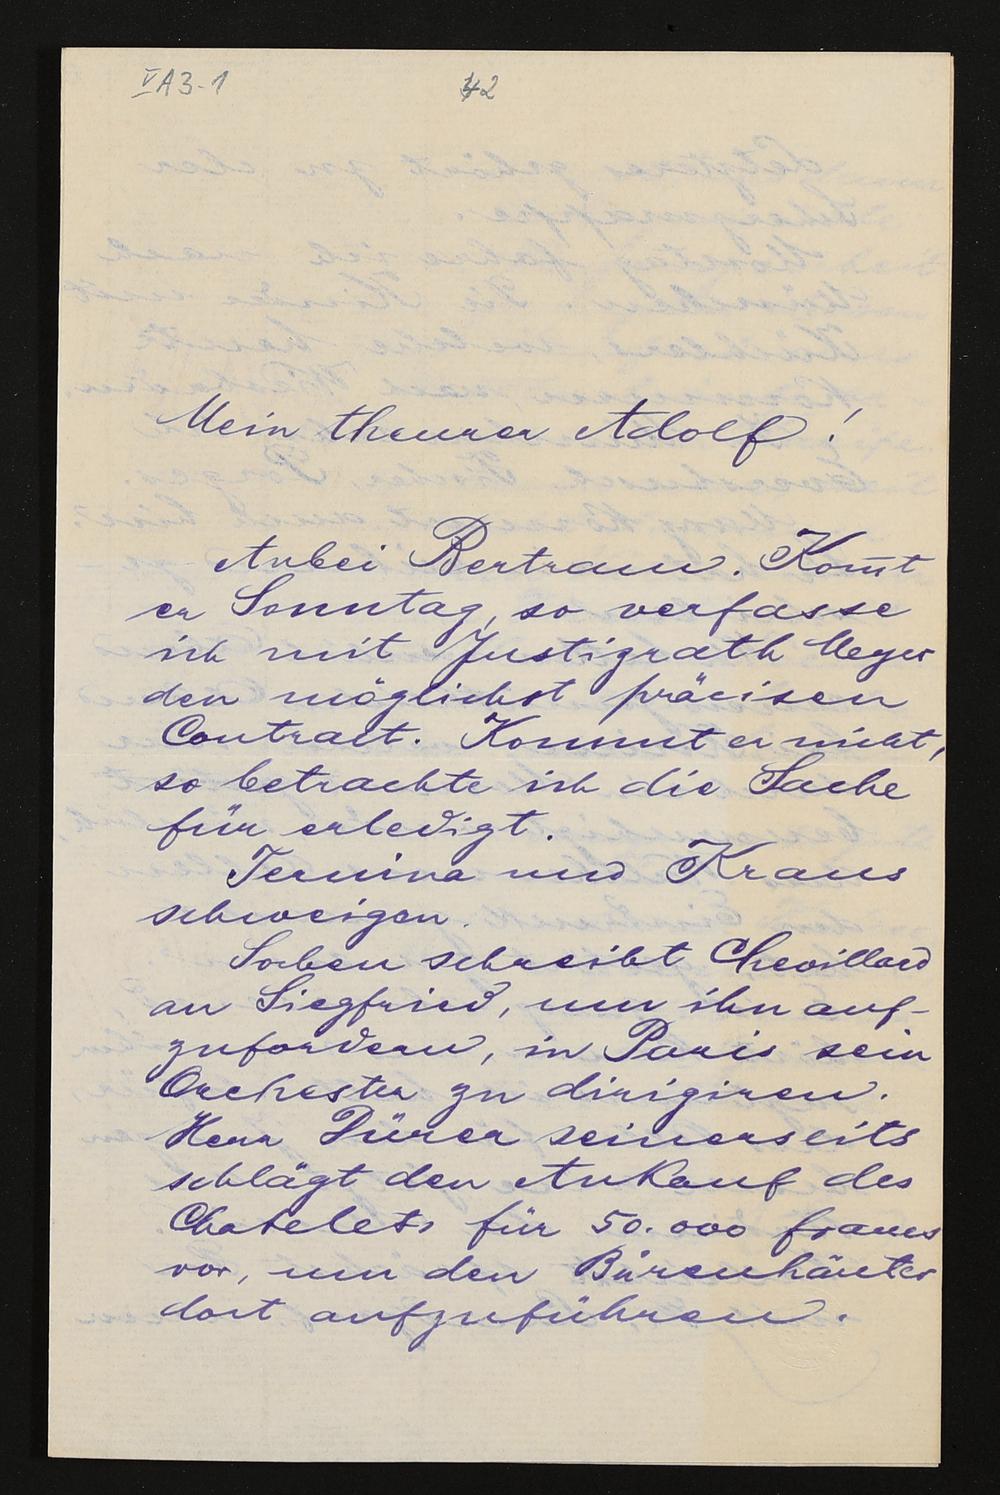 VA3-1 42
Mein theurer Adolf!
Anbei Bertram. Kom̄t
er Sonntag, so verfasse
ich mit Justizrath Meyer
den möglichst präcisen
Contract. Kommt er nicht,
so betrachte ich die Sache
für erledigt.
Ternina und Kraus
schweigen.
Soeben schreibt Chevillard
an Siegfried, um ihn auf-
zufordern, in Paris sein
Orchester zu dirigiren.
Herr Dürer seinerseits
schlägt den Ankauf des
Chatelets für 50.000 francs
vor, um den Bärenhäuter
dort aufzuführen.